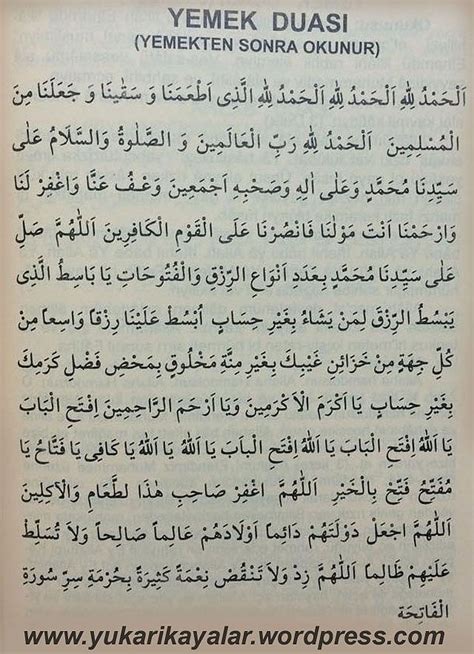 YEMEK DUASI
(YEMEKTEN SONRA OKUNUR)
اَلْحَمْدُ لِلّٰهِ اَلْحَمْدُ لِلّٰهِ اَلْحَمْدُ لِلّٰهِ الَّذِى اَطْعَمَنَا وَ سَقٰينَا وَ جَعَلَنَا مِنَ
الْمُسْلِمِينَ اَلْحَمْدُ لِلّٰهِ رَبِّ الْعَالَمِينَ وَ الصَّلٰوةُ وَالسَّلَامُ عَلٰى
سَيِّدِنَا مُحَمَّدٍ وَعَلٰى اٰلِهِ وَصَحْبِهِ اَجْمَعِينَ وَعْفُ عَنَّا وَاغْفِرْ لَنَا
وَارْحَمْنَا اَنْتَ مَوْلٰنَا فَانْصُرْنَا عَلَى الْقَوْمِ الْكَافِرِينَ اَللّٰهُمَّ صَلِّ
عَلٰى سَيِّدِنَا مُحَمَّدٍ بِعَدَدِ اَنْوَاعِ الرِّزْقِ وَالْفُتُوحَاتِ يَا بَاسِطُ الَّذِى
يَبْسُطُ الرِّزْقَ لِمَنْ يَشَاءُ بِغَيْرِ حِسَابٍ اُبْسُطْ عَلَيْنَا رِزْقًا وَاسِعًا مِنْ
كُلِّ جِهَةٍ مِنْ خَزَائِنِ غَيْبِكَ بِغَيْرِ مِنَّةِ مَخْلُوقٍ بِمَحْضِ فَضْلِ كَرَمِكَ
بِغَيْرِ حِسَابٍ يَا اَكْرَمَ الْاَكْرَمِينَ وَيَا اَرْحَمَ الرَّاحِمِينَ اِفْتَحِ الْبَابَ
يَا اَللّٰهُ اِفْتَحِ الْبَابَ يَا اَللّٰهُ اِفْتَحِ الْبَابَ يَا اَللّٰهُ يَا اَللّٰهُ يَا كَافِى يَا فَتَّاحُ يَا
مُفَتِّحُ فَتِّحْ بِالْخَيْرِ اَللّٰهُمَّ اغْفِرْ صَاحِبِ هٰذَا لطَّعَامِ وَالْاٰكِلِينَ
اَللّٰهُمَّ اجْعَلْ دَوْلَتَهُمْ دَائِمًا اَوْلَادَهُمْ عَالِمًا صَالِحًا وَلَا تُسَلِّطْ
عَلَيْهِمْ ظَالِمًا اَللّٰهُمَّ زِدْ وَلَا تَنْقُصْ نِعْمَةً كَثِيرَةً بِحُرْمَةِ سِرِّ سُورَةِ
الْفَاتِحَة
www.yukarikayalar.wordpress.com